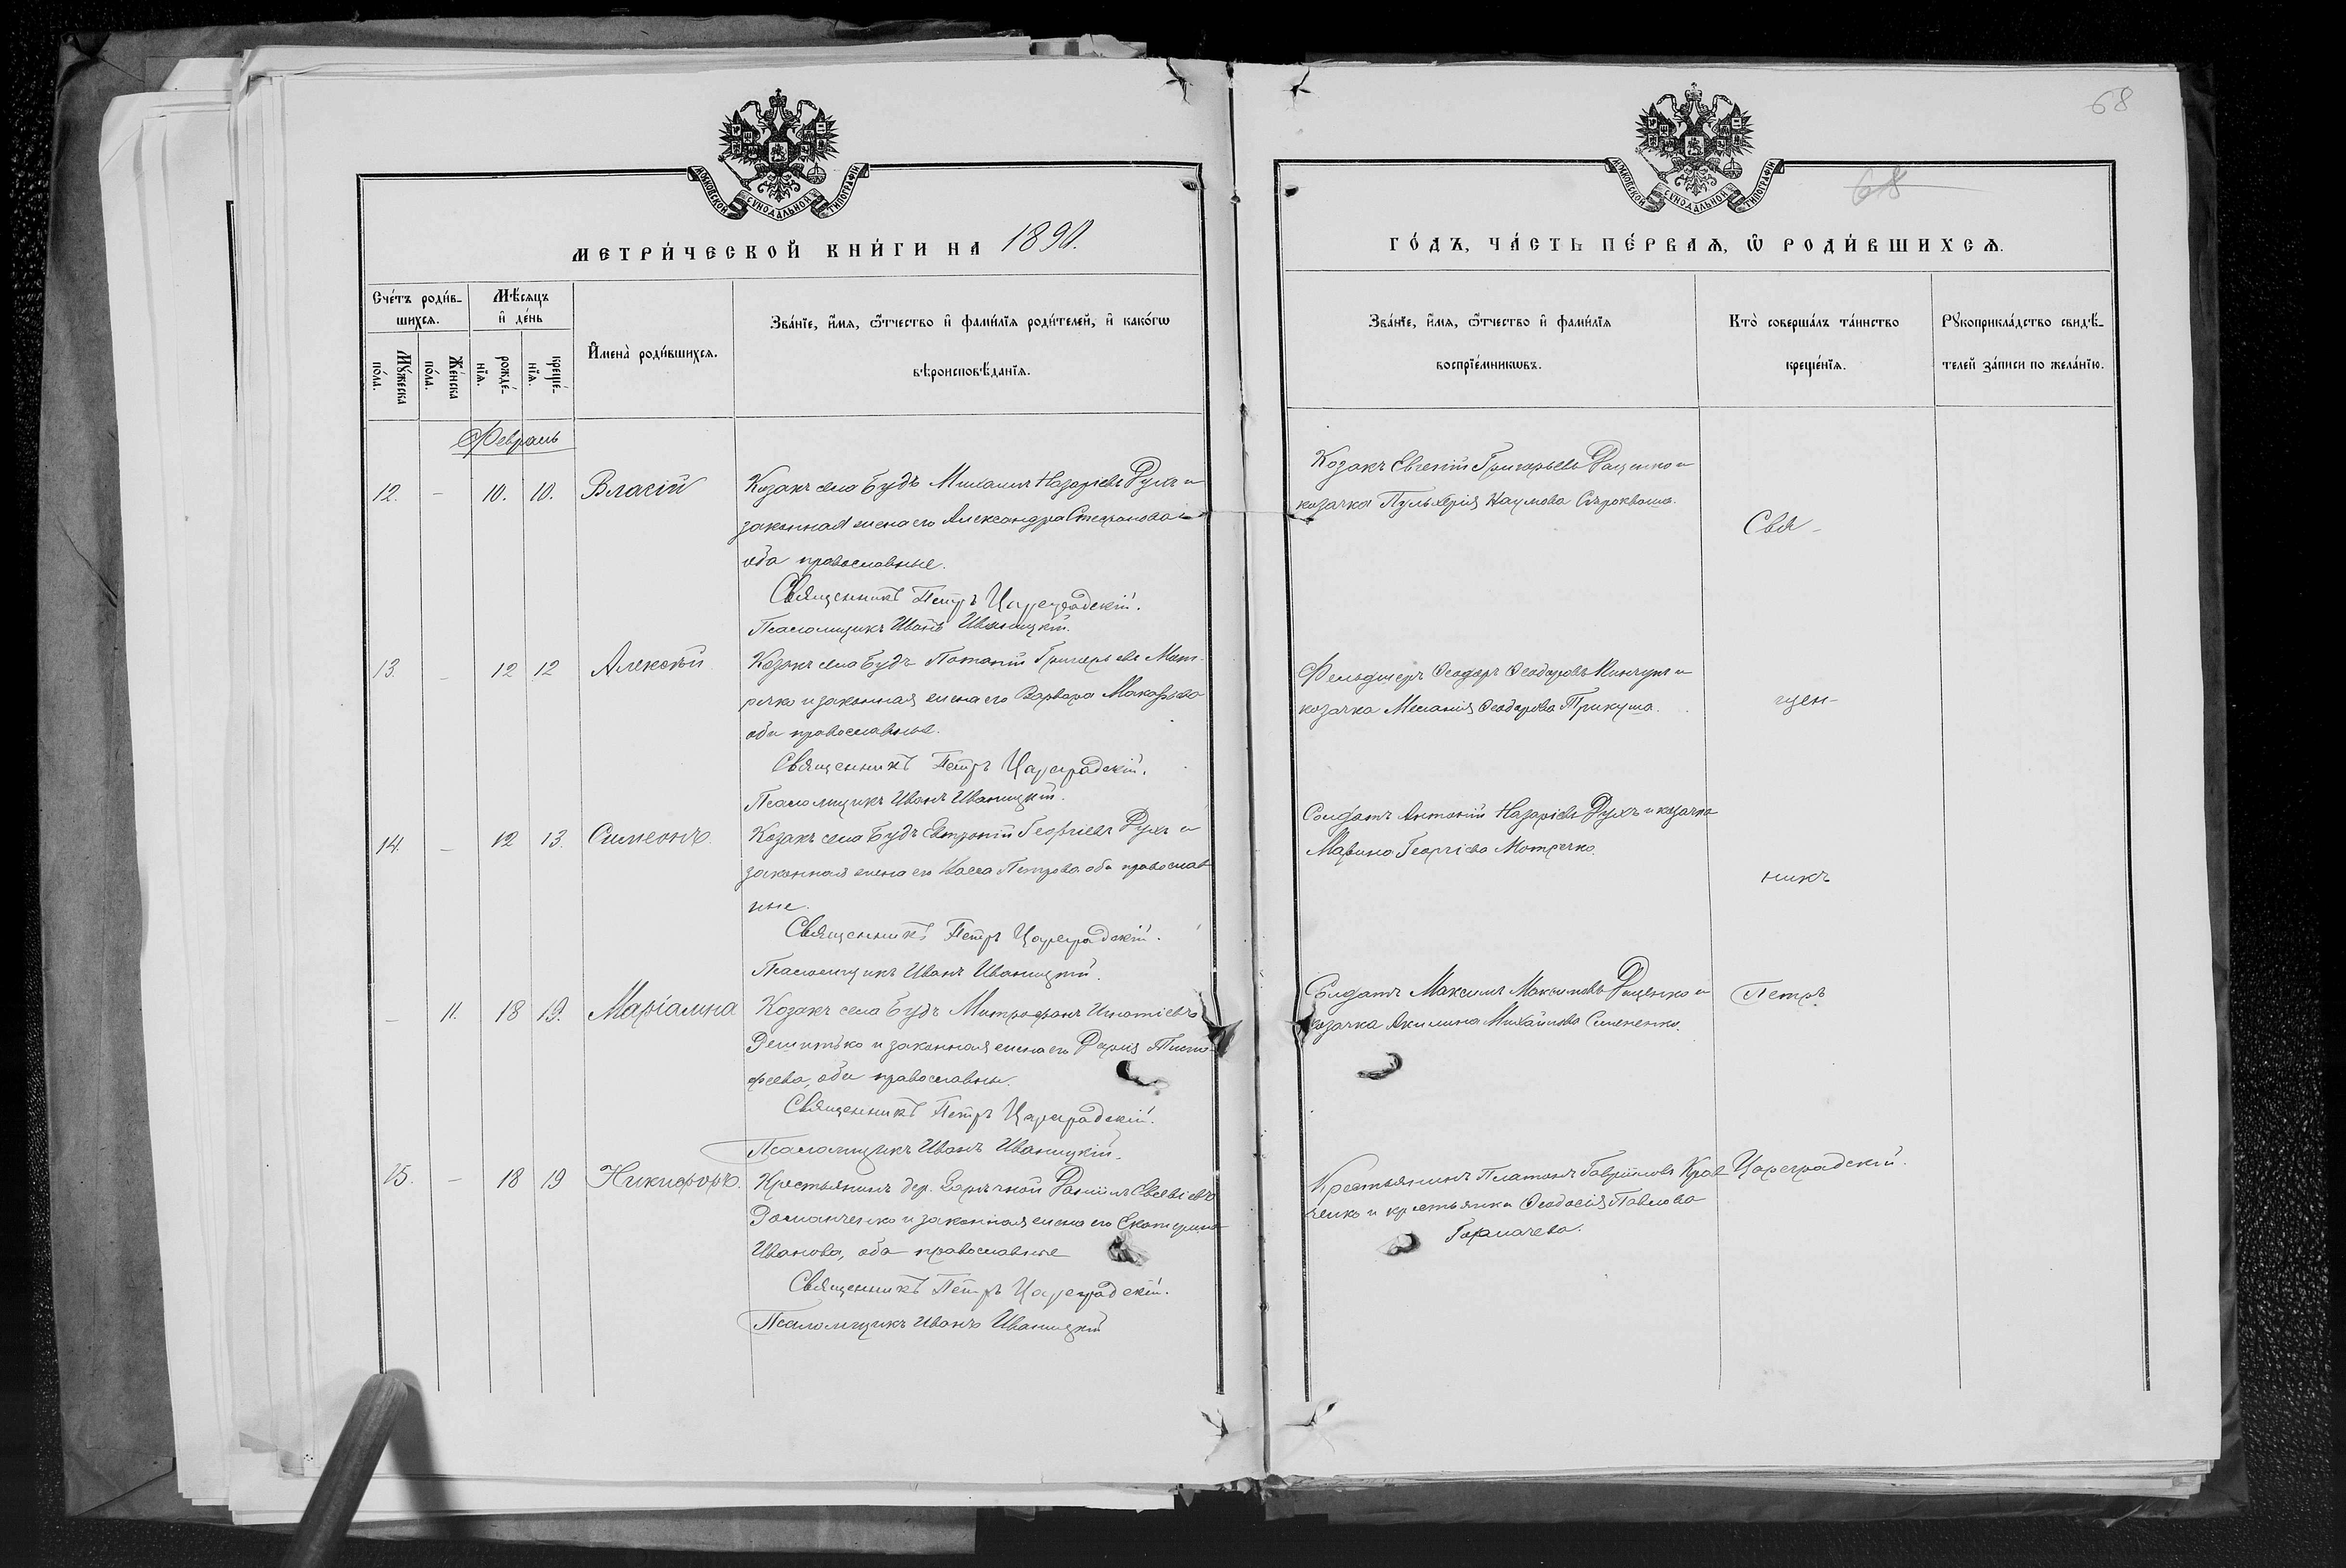 68
68
МОСКОВСКОЙ СУНОДАЛЬНОЙ ТИПОГРАФІИ
МОСКОВСКОЙ СУНОДАЛЬНОЙ ТИПОГРАФІИ
МЕТРИ́ЧЕСКОЙ КНИ́ГИ НА 1890.
ГО́ДЪ, ЧА́СТЬ ПЕ́РВАѦ, Ѡ҆ РОДИ́ВШИХСѦ.
Сче́тъ роди́в-
шихсѧ.
Мѣ́сѧцъ
и҆ де́нь
Мꙋ́жеска
по́ла.
Же́нска
по́ла.
рожде́-
нїѧ.
креще́-
нїѧ.
И҆мена̀ роди́вшихсѧ.
Зва́нїе, и҆́мѧ, ѻ҆́тчество и҆ фами́лїѧ роди́телей, и҆ како́гѡ
вѣроисповѣ́данїѧ.
Зва́нїе, и҆́мѧ, ѻ҆́тчество и҆ фами́лїѧ
воспрїе́мникѡвъ.
Кто̀ соверша́лъ та́инство
креще́нїѧ.
Рꙋкоприкла́дство свидѣ́-
телей за́писи по жела́нїю.
Февраль
12. - 10. 10. Власій
Козакъ села Будъ Михаилъ Назаріевъ Духъ и
законная жена его Александра Стефанова
оба православные.
Священникъ Петръ Цареградскій.
Псаломщикъ Иванъ Иваницкій.
Козакъ Евгеній Григорьевъ Даценко и
козачка Пульхерія Наумова Сыроквоша.
Свя-
13. - 12 12 Алексѣй
Козакъ села Будъ Потапій Григорьевъ Мот-
речко и законная жена его Варвара Макарьева
оба православные.
Священникъ Петръ Цареградскій.
Псаломщикъ Иванъ Иваницкій.
Фельдшеръ Ѳеодоръ Ѳеодоровъ и
козачка Меланія Ѳеодорова
щен-
14. - 12 13. Симеонъ.
Козакъ села Будъ Евтропій Георгіевъ Духъ и
законная жена его Васса Петрова оба православ
ные.
Священникъ Петръ Цареградскій.
Псаломщикъ Иванъ Иваницкій.
Солдатъ Антоній Назаріевъ Духъ и козачка
Марина Георгіева Мотречко.
никъ
- 11. 18 19. Маріамна
Козакъ села Будъ Митрофанъ Игнатіевъ
Демитько и законная жена его Дарія Тимо-
феева, оба православны.
Священникъ Петръ Цареградскій.
Псаломщикъ Иванъ Иваницкій.
Солдатъ Максимъ Максимовъ Даценко и
козачка Акилина Михайлова Симененко.
Петръ
15. - 18 19 Никифоръ.
Крестьянинъ дер. Заречной Даніилъ Евсевіевъ
Романченко и законная жена его Екатерина
Иванова, оба православные
Священникъ Петръ Цареградскій.
Псаломщикъ Иванъ Иваницкій
Крестьянинъ Платонъ Гавріиловъ Крав
ченко и крестьянка Ѳеодосія Павлова
Горпачева.
Цареградскій.